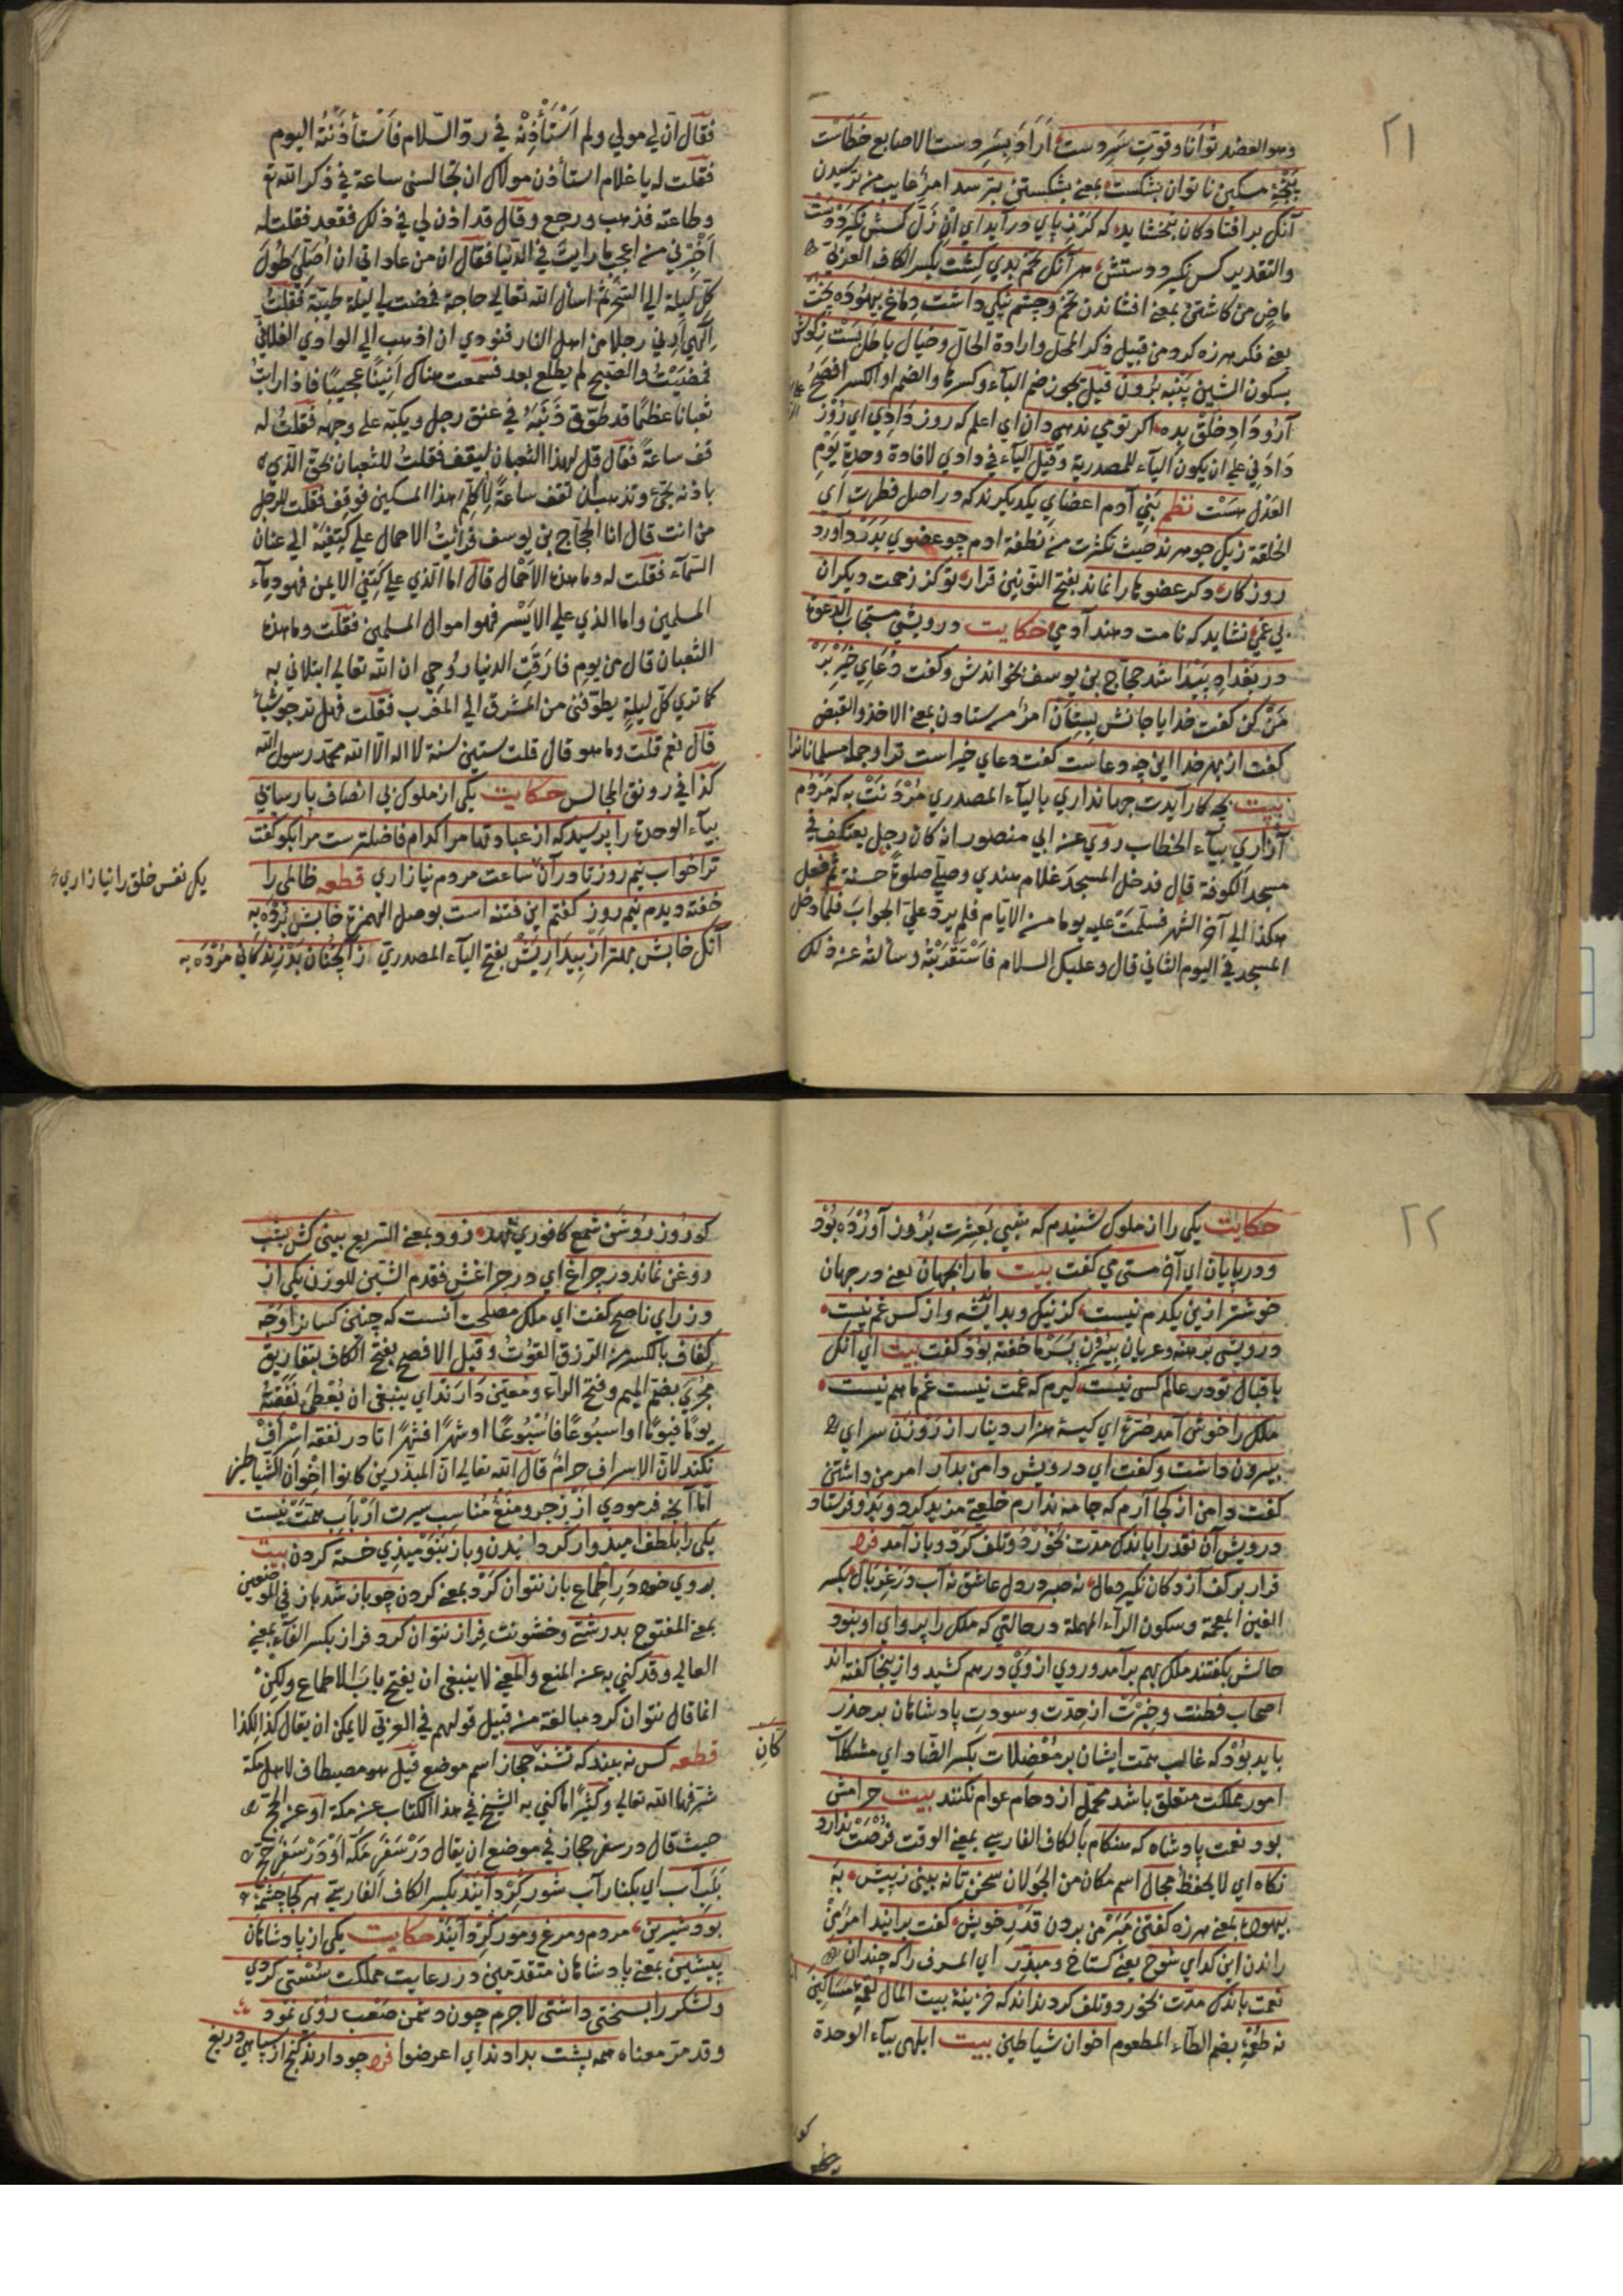 ٢١
وهو العضد توانا وقوت سر دست أراد بسر دست الاصابع خطاست
پنجه مسكين ناتوان بشكست بمعنى بشكستن بترسد امر غايب من ترسيدن
آنكه بر افتادكان نبخشايد كه كرز پاي در آيد اي ان زل كسش نكيرد دست
والتقدير كس نكيرد دستش هر آنكه تخم بدي كشت بكسر الكاف العربي
ماض من كاشتن بمعنى افشاندن تخم وچشم نيكي داشت دماغ بيهوده پخت
يعني فكر هرزه كرد من قبيل ذكر المحل وارادة الحال وخيال باطل بست زكوش
بسكون الشين پنبه برون قيل يجوز ضم الباء وكسرها والضم او الكسر افصح
آر وداد خلق بده اكر تو مي ندهي دان اي اعلم كه روز دادي اي روز
دادني على ان يكون الياء للمصدرية وقيل الياء في دادي لافادة وحدة يوم
العدل هست نظم بني آدم اعضاي يكديكرند كه در اصل فطرت اي
الخلقة زيك جوهرند حيث تكثرت من نطفة ادم چو عضوي بدرد آورد
روزكار دكر عضوها را نماند بفتح النونين قرار تو كز زحمت ديكران
بي غمي نشايد كه نامت دهند آدمي حكايت درويشي مستجاب الدعوة
در بغداد پيدا شد حجاج بن يوسف بخواندش وكفت دعاي خير بر
من كن كفت خدايا جانش بستان امر من ستادن بمعنى الاخذ والقبض
كفت از بهر خدا اين چه دعاست كفت دعاي خيراست ترا وجمله مسلمانانرا
بيت بچه كار آيدت جهانداري بالياء المصدري مردنت به كه مردم
آزاري بياء الخطاب روي عن ابي منصور انه كان رجل يعتكف في
مسجد الكوفة قال فدخل المسجد غلام هندي وصلى صلوة حسنة ثم فعل
هكذا الي آخر الشهر فسلمت عليه يوما من الايام فلم يرد علي الجواب فلما دخل
المسجد في اليوم الثاني قال وعليك السلام فاستقربته وسألته عن ذلك
فقال ان لي مولي ولم استأذنه في رد السلام فاستأذنته اليوم
فقلت له يا غلام استأذن مولاك ان تجالسني ساعة في ذكر الله تع
وطاعته فذهب ورجع وقال قد اذن لي في ذلك فقعد فقلت له
اخبرني من اعجب ما رايت في الدنيا فقال ان من عاداتي ان اصلي طول
كل ليلة الي السحر ثم اسأل الله تعالي حاجة فمضت لي ليلة طيبة فقلت
الهي ارني رجلا من اهل النار فنودي ان اذهب الي الوادي الفلاني
فمضيت والصبح لم يطلع بعد فسمعت هناك انينا عجيبا فاذا رايت
ثعبانا عظيما قد طوق ذنبه في عنق رجل ويكبه على وجهه فقلت له
قف ساعة فقال قل لهذا الثعبان ليقف فقلت للثعبان بحق الذي
باذنه تجيء وتذهب ان تقف ساعة لاكلم هذا المسكين فوقف فقلت للرجل
من انت قال انا الحجاج بن يوسف فرائت الاحمال على كتفيه الي عنان
السماء فقلت له وما هذه الاحمال قال اما الذي على كتفي الايمن فهو دماء
المسلمين واما الذي علي الايسر فهو اموال المسلمين فقلت وما هذه
الثعبان قال من يوم فارقت الدنيا روحي ان الله تعالي ابتلاني به
كما تري كل ليلة يطوقني من المشرق الي المغرب فقلت فهل ترجو شيأ
قال نعم قلت وما هو قال قلت ستين سنة لا اله الا الله محمد رسول الله
كذا في رونق المجالس حكايت يكي از ملوك بي انصاف پارسايي
بياء الوحدة را پرسيد كه از عبادتها مرا كدام فاضلترست مرا بكو كفت
ترا خواب نيم روز تا در آن ساعت مردم نيازاري قطعه ظالمي را
يك نفس خلق را نيازاري
خفته ديدم نيم روز كفتم اين فتنه است بوصل الهمزة خابش برده به
آنكه خابش بهتر از بيداريش بفتح الياء المصدري آنچنان بد زندكاني مرده به
٢٢
حكايت يكي را از ملوك شنيدم كه شبي بعشرت بروز آورده بود
ودر پايان اي آخر مستي مي كفت بيت ما را بجهان يعني در جهان
خوشتر ازين يكدم نيست كز نيك وبد انديشه واز كس غم نيست
درويشي برهنه وعريان بيرون بسرما خفته بود كفت بيت اي آنكه
باقبال تو در عالم كسي نيست كيرم كه غمت نيست غم ما هم نيست
ملك را خوش آمد صره اي كيسه هزار دينار از روزن سراي
بيرون داشت وكفت اي درويش دامن بدار امر من داشتن
كفت دامن از كجا آرم كه جامه ندارم خلعتي مزيد كرد وبدو فرستاد
درويش آن نقد را باندك مدت بخورد وتلف كرد وباز آمد فرد
قرار بر كف آزادكان نكيرد مال نه صبر در دل عاشق نه آب در غربال بكسر
الغين المعجمة وسكون الراء المهملة در حالتي كه ملك را پرواي او نبود
حالش بكفتند ملك بهم برآمد وروي از وي درهم كشيد وازينجا كفته اند
اصحاب فطنت وخبرت از حدت وسورت پادشاهان بر حذر
بايد بود كه غالب همت ايشان بر معضلات بكسر الضاد اي مشكلات
امور مملكت متعلق باشد تحمل ازدحام عوام نكنند بيت حرامش
بود نعمت پادشاه كه هنكام بالكاف الفارسي بمعنى الوقت فرصت ندارد
نكاه اي لا يحفظ مجال اسم مكان من الجولان سخن تا نه بيني ز پيش به
بيهوده بمعنى هرزه كفتن مبر من بردن قدر خويش كفت برانيد امر من
راندن اين كداي شوخ يعني كستاخ ومبذر اي المسرف را كه چندان
نعمت باندك مدت بخورد وتلف كرد نداند كه خزينه بيت المال لقمه مساكين
نه طعمه بضم الطاء المطعوم اخوان شياطين بيت ابلهي بياء الوحدة
كو
كو روز روشن شمع كافوري نهد زود بمعنى السريع بيني كش بشب
روغن نماند در چراغ اي در چراغش فقدم الشين للوزن يكي از
وزراي ناصح كفت اي ملك مصلحت آنست كه چنين كسانرا وجه
كفاف بالكسر من الرزق القوت وقيل الافصح بفتح الكاف بتفاريق
مجري بضم الميم وفتح الراء ومعين دارند اي ينبغي ان يعطي نفقة
يوما فيوما او اسبوعا فاسبوعا او شهرا فشهرا تا در نفقه اسراف
نكند لان الاسراف حرام قال الله تعالي ان المبذرين كانوا اخوان الشياطين
اما آنچه فرمودي از زجر ومنع مناسب سيرت ارباب همت نيست
يكي را بلطف اميدوار كردانيدن وباز بنوميدي خسته كردن بيت
بروي خود در اطماع باز نتوان كرد بمعنى كردن چو باز شد باز في الموضعين
بمعنى المفتوح بدرشتي وخشونت فراز نتوان كرد فراز بكسر الفاء بمعنى
العالي وقد كني به عن المنع والمعنى لا ينبغي ان يفتح باب الاطماع ولكن
انما قال نتوان كرد مبالغة من قبيل قولهم في العربي لا يمكن ان يقال كذا لكذا
قطعه كس نه بيند كه تشنه حجاز اسم موضع قيل هو مصيطاف لاهل مكة
كان
شرفها الله تعالي وكثيرا ما كني به الشيخ في هذا الكتاب عن مكة او عن الحج
حيث قال در سفر حجاز في موضع ان يقال در سفر مكه او در سفر حج
بلب آب اي بكنار آب شور كرد آيند بكسر الكاف الفارسي هر كجا چشمه
بود شيرين مردم ومرغ ومور كرد آيند حكايت يكي از پادشاهان
پيشين بمعنى پادشاهان متقدمين در رعايت مملكت سستي كردي
ولشكر را بسختي داشتي لاجرم چون دشمن صعب روي نمود
وقد مر معناه همه پشت بدادند اي اعرضوا فرد چو دارند كنج از سپاهي دريغ